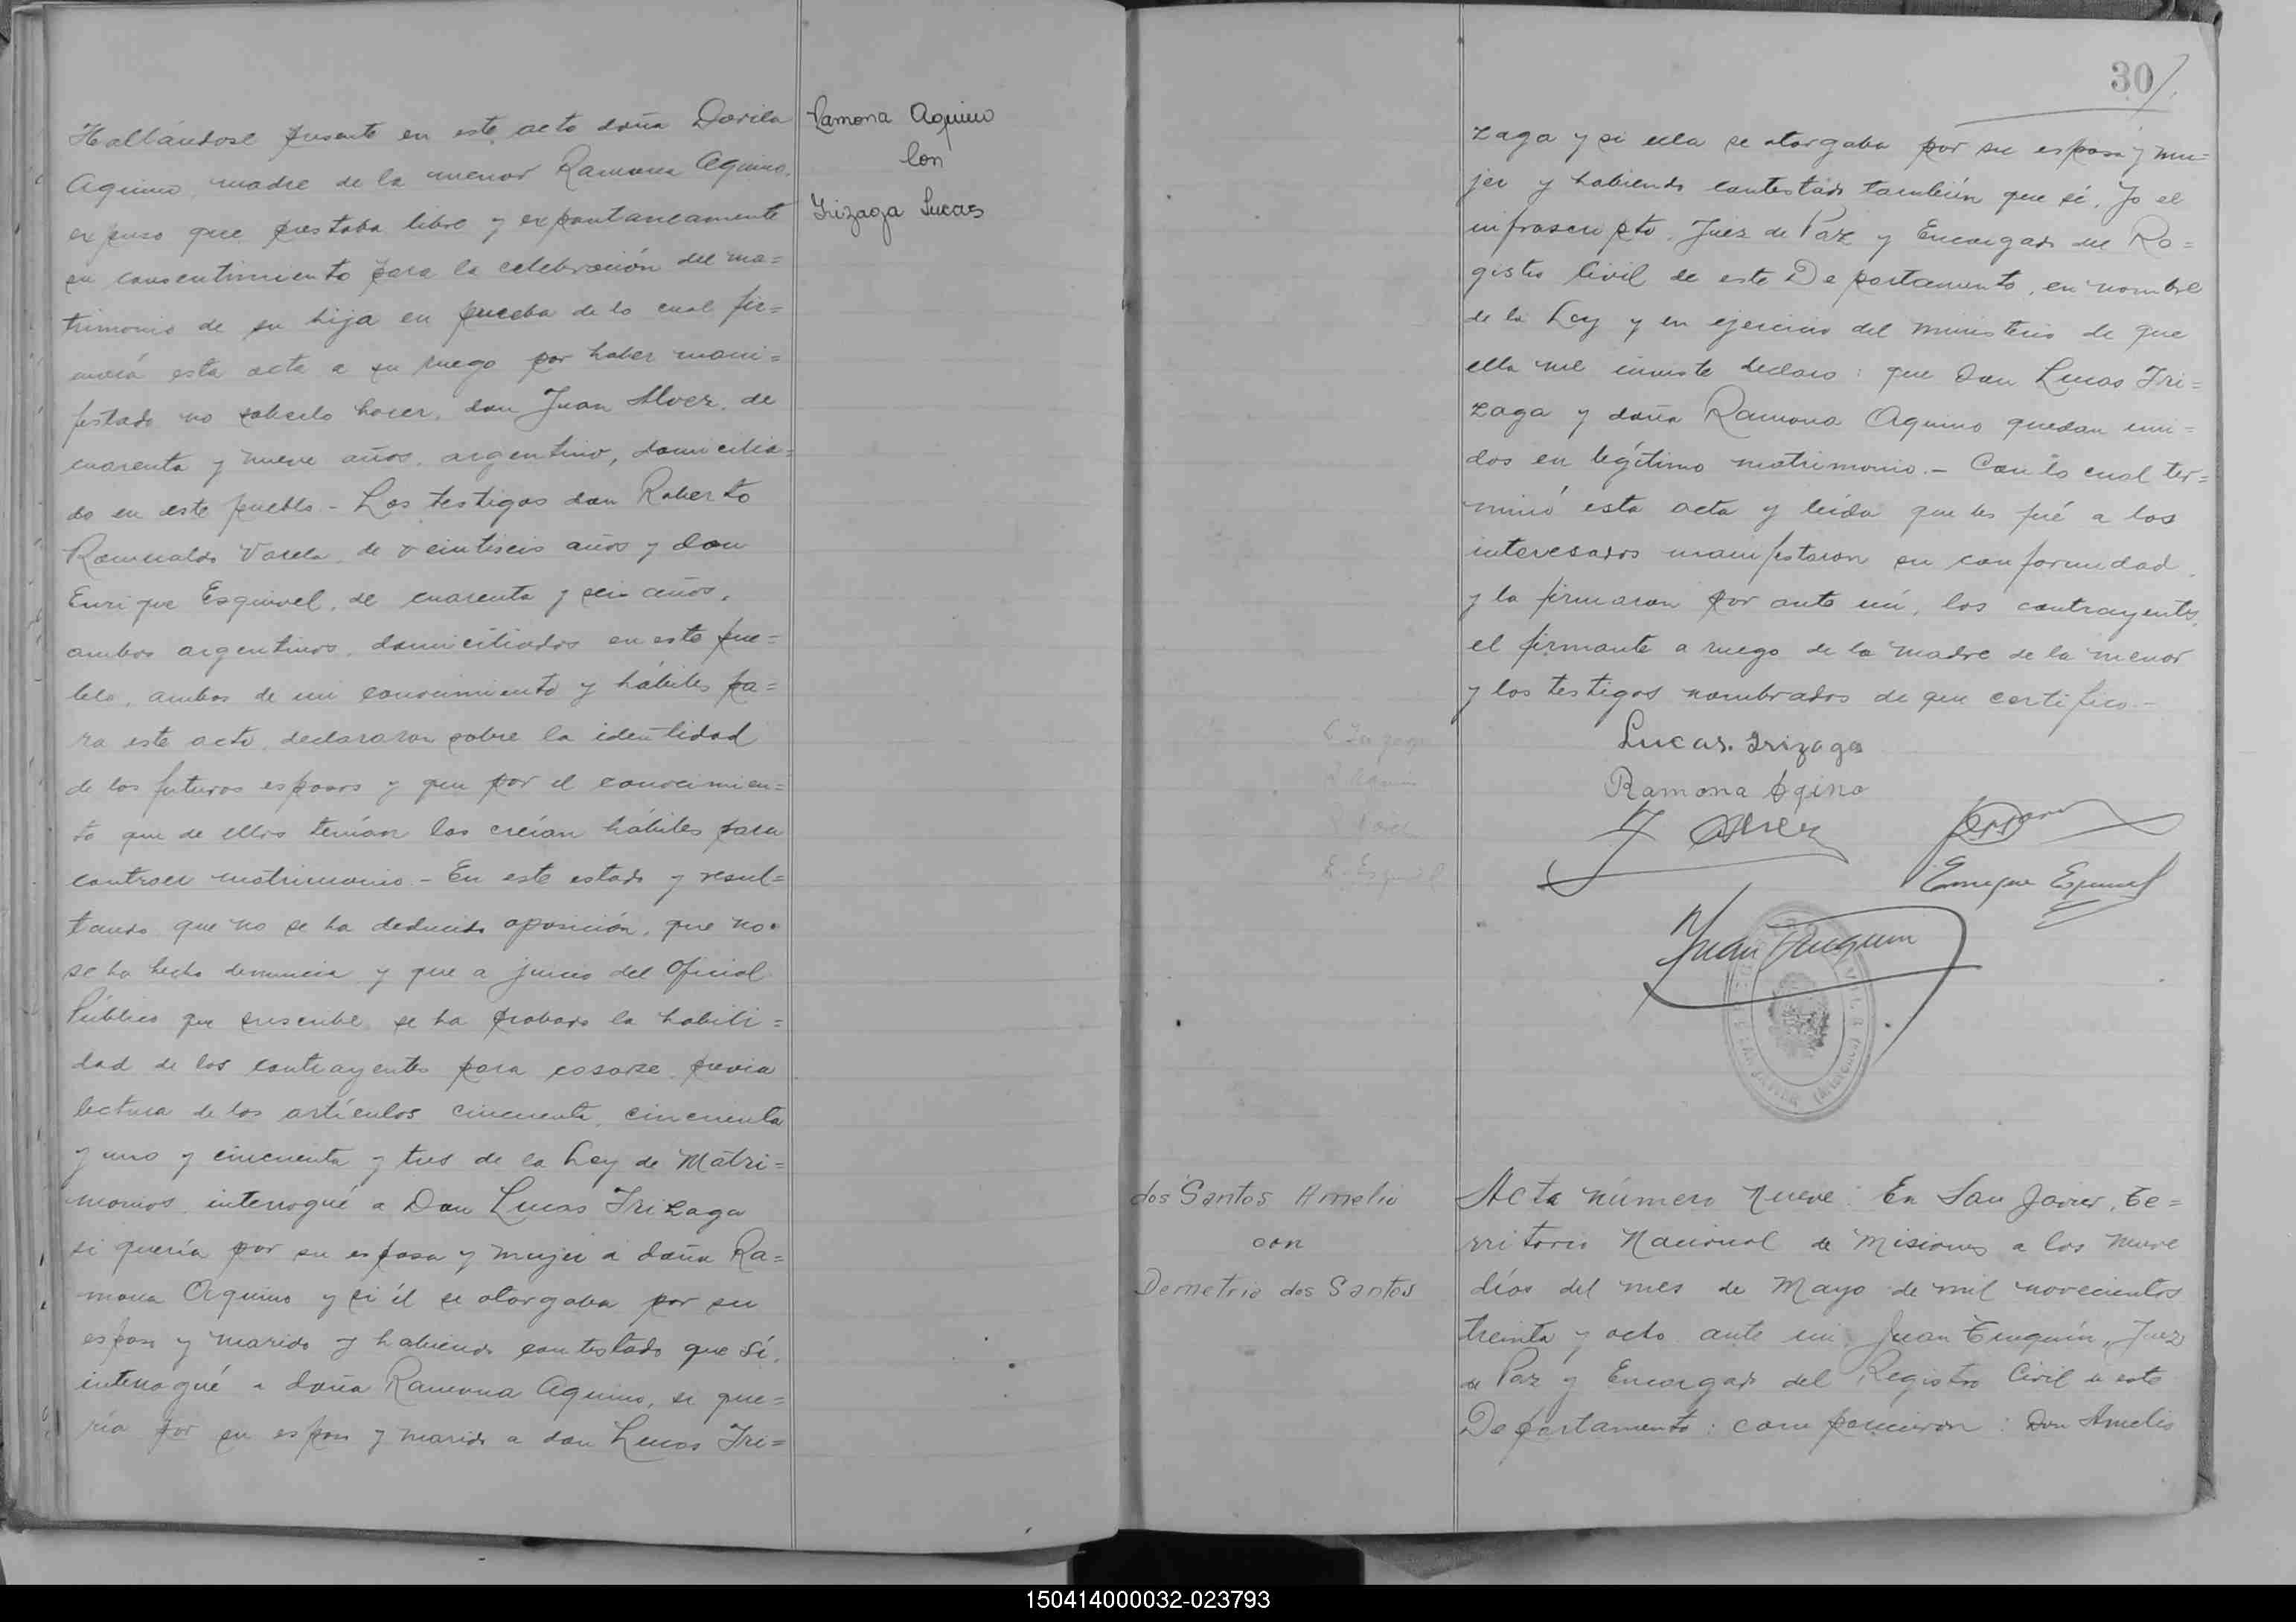 Hallándose presente en este acto doña Dorila
Aquino, madre de la menor Ramona Aquino,
expuso que prestaba libre y expontaneamente
su consentimiento para la celebración del ma=
trimonio de su hija en prueba de lo cual fir=
mará esta acta a su ruego por haber mani=
festado no saberlo hacer, don Juan Alvez, de
cuarenta y nueve años, argentino, domicilia=
do en este pueblo.- Los testigos don Roberto
Romualdo Varela, de veintiseis años y don
Enrique Esquivel, de cuarenta y seis años,
ambos argentinos, domiciliados en este pue=
blo, ambos de mi conocimiento y hábiles pa=
ra este acto, declararon sobre la identidad
de los futuros esposos y que por el conocimien=
to que de ellos tenían los creían hábiles para
contraer matrimonio.- En este estado y resul=
tando que no se ha deducido oposición, que no
se ha hecho denuncia y que a juicio del Oficial
Público que suscribe se ha probado la habili=
dad de los contrayentes para casarse, previa
lectura de los artículos cincuenta, cincuenta
y uno y cincuenta y tres de la Ley de Matri=
monios, interrogué a Don Lucas Irizaga
si quería por su esposa y mujer a doña Ra=
mona Aquino y si él se otorgaba por su
esposo y marido y habiendo contestado que sí,
interrogué a doña Ramona Aquino, si que=
ría por su esposo y marido a don Lucas Iri=
Ramona Aquino
Con
Irizaga Lucas
30
zaga y si ella se otorgaba por su esposa y mu=
jer y habiendo contestado también que sí, Yo el
infrascripto, Juez de Paz y Encargado del Re=
gistro Civil de este Departamento, en nombre
de la Ley y en ejercicio del ministerio de que
ella me inviste declaro: que Don Lucas Iri=
zaga y doña Ramona Aquino quedan uni=
dos en legítimo matrimonio.- Con lo cual ter=
minó esta acta y leída que les fué a los
interesados manifestaron su conformidad
y la firmaron por ante mí, los contrayentes,
el firmante a ruego de la madre de la menor
y los testigos nombrados de que certifico.-
Lucas. Irizaga
Ramona Aqino
J Alvez
Enrique Esquivel
Juan Tuzquin
dos Santos Amelio
con
Demetria dos Santos
Acta número nueve: En San Javier, Te=
rritorio Nacional de Misiones a los nueve
días del mes de Mayo de mil novecientos
treinta y ocho ante mí Juan Juez
de Paz y Encargado del Registro Civil de este
Departamento: comparecieron: Don Amelio
150414000032-023793